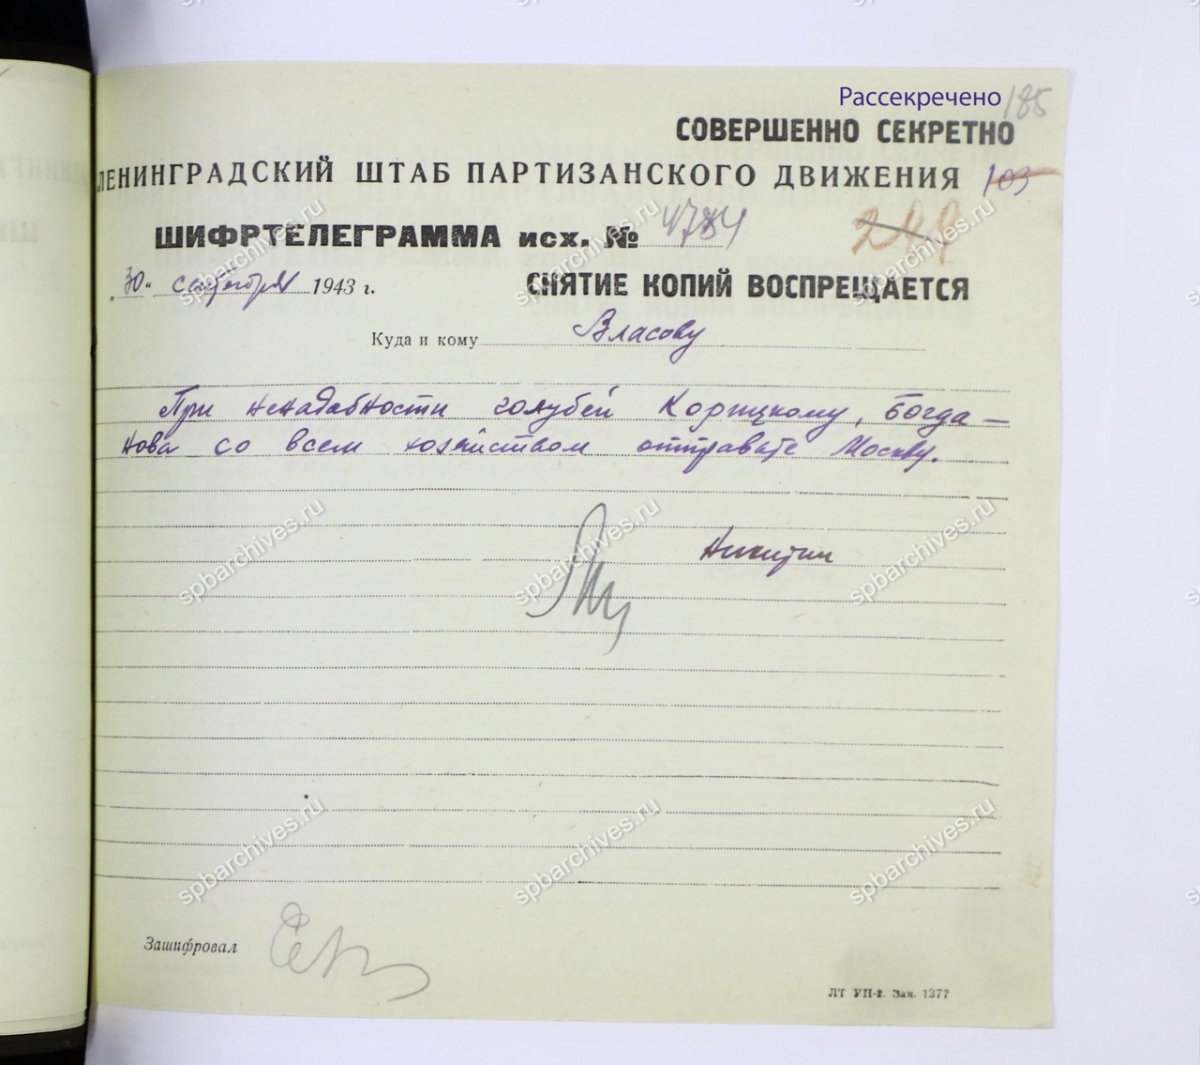 Рассекречено 185
СОВЕРШЕННО СЕКРЕТНО
ЛЕНИНГРАДСКИЙ ШТАБ ПАРТИЗАНСКОГО ДВИЖЕНИЯ 103
ШИФРТЕЛЕГРАММА исх. № 4784
"30" сентября 1943 г. СНЯТИЕ КОПИЙ ВОСПРЕЩАЕТСЯ
Куда и кому Власову
При ненадобности голубей Корицкому, Богда-
нова со всем хозяйством отправьте Москву.
Никитин
Зашифровал
ЛТ УП-2. Зак. 1377
spbarchives.ru